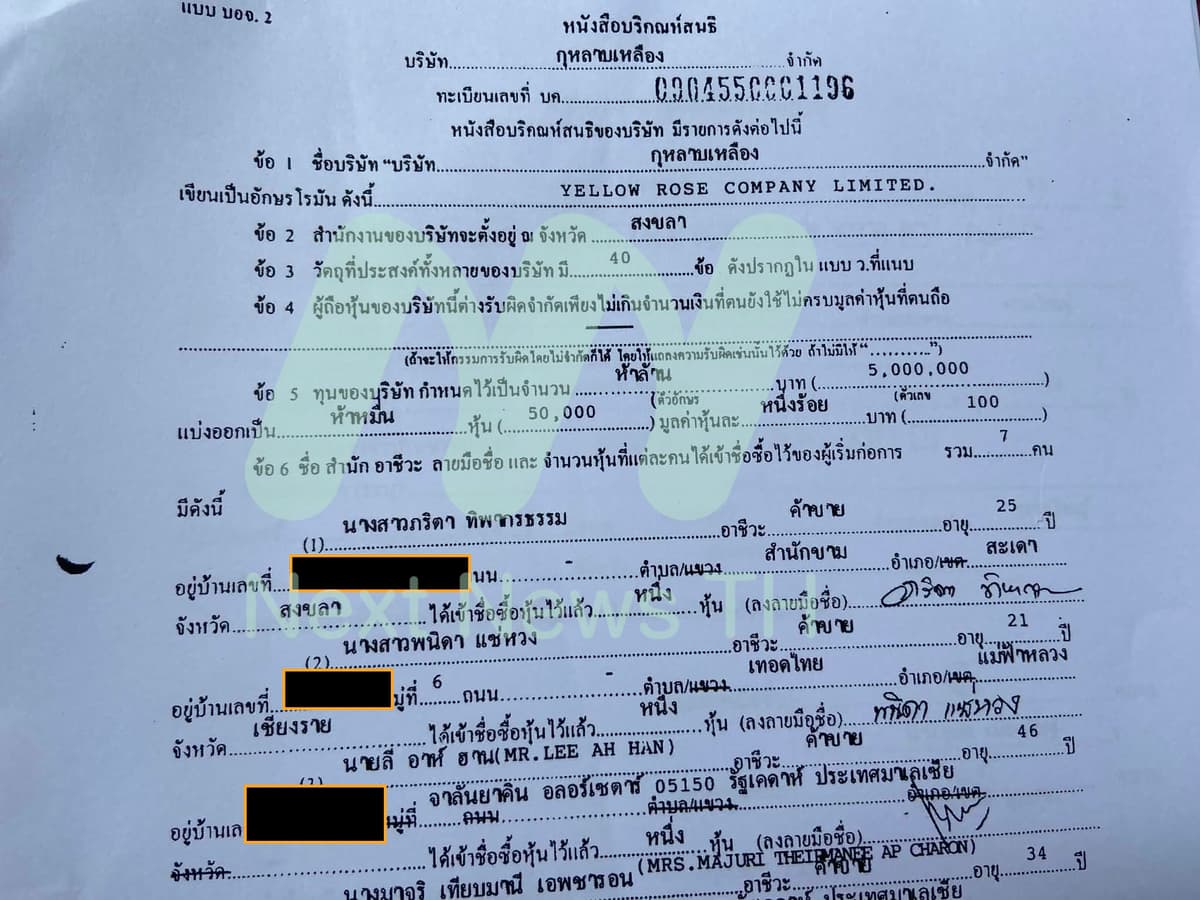 แบบ บอจ. 2
หนังสือบริคณห์สนธิ
บริษัท กุหลาบเหลือง จำกัด
ทะเบียนเลขที่ บค. 0904550001196
หนังสือบริคณห์สนธิของบริษัท มีรายการดังต่อไปนี้
ข้อ 1 ชื่อบริษัท “บริษัท กุหลาบเหลือง จำกัด”
เขียนเป็นอักษรโรมัน ดังนี้ YELLOW ROSE COMPANY LIMITED.
ข้อ 2 สำนักงานของบริษัทจะตั้งอยู่ ณ จังหวัด สงขลา
ข้อ 3 วัตถุที่ประสงค์ทั้งหลายของบริษัท มี 40 ข้อ ดังปรากฏใน แบบ ว.ที่แนบ
ข้อ 4 ผู้ถือหุ้นของบริษัทนี้ต่างรับผิดจำกัดเพียงไม่เกินจำนวนเงินที่ตนยังใช้ไม่ครบมูลค่าหุ้นที่ตนถือ
(ถ้าจะให้กรรมการรับผิดโดยไม่จำกัดก็ได้ โดยให้แถลงความรับผิดเช่นนั้นไว้ด้วย ถ้าไม่มีให้ “..........”)
ข้อ 5 ทุนของบริษัท กำหนดไว้เป็นจำนวน ห้าล้าน บาท (5,000,000)
(ตัวอักษร (ตัวเลข
แบ่งออกเป็น ห้าหมื่น หุ้น (50,000) มูลค่าหุ้นละ หนึ่งร้อย บาท (100)
ข้อ 6 ชื่อ สำนัก อาชีวะ ลายมือชื่อ และ จำนวนหุ้นที่แต่ละคนได้เข้าชื่อซื้อไว้ของผู้เริ่มก่อการ รวม 7 คน
มีดังนี้
(1) นางสาวภริดา ทิพากรธรรม อาชีวะ ค้าขาย อายุ 25 ปี
อยู่บ้านเลขที่ ถนน - ตำบล/แขวง สำนักขาม อำเภอ/เขต สะเดา
จังหวัด สงขลา ได้เข้าชื่อซื้อหุ้นไว้แล้ว หนึ่ง หุ้น (ลงลายมือชื่อ)
Next News TH
(2) นางสาวพนิดา แซ่หวง อาชีวะ ค้าขาย อายุ 21 ปี
อยู่บ้านเลขที่ หมู่ที่ 6 ถนน - ตำบล/แขวง เทอดไทย อำเภอ/เขต แม่ฟ้าหลวง
จังหวัด เชียงราย ได้เข้าชื่อซื้อหุ้นไว้แล้ว หนึ่ง หุ้น (ลงลายมือชื่อ) พนิดา แซ่หวง
นายลี อาห์ ฮาน(MR.LEE AH HAN) อาชีวะ ค้าขาย อายุ 46 ปี
อยู่บ้านเล หมู่ที่ จาลันยาคิน อลอร์เซตาร์ 05150 รัฐเคดาห์ ประเทศมาเลเซีย ถนน ตำบล/แขวง อำเภอ/เขต
จังหวัด ได้เข้าชื่อซื้อหุ้นไว้แล้ว หนึ่ง หุ้น (ลงลายมือชื่อ)
นางมาจุริ เทียบมานี เอพชารอน (MRS.MAJURI THEIRMANEE AP CHARON) อาชีวะ ค้าขาย อายุ 34 ปี
ประเทศมาเลเซีย